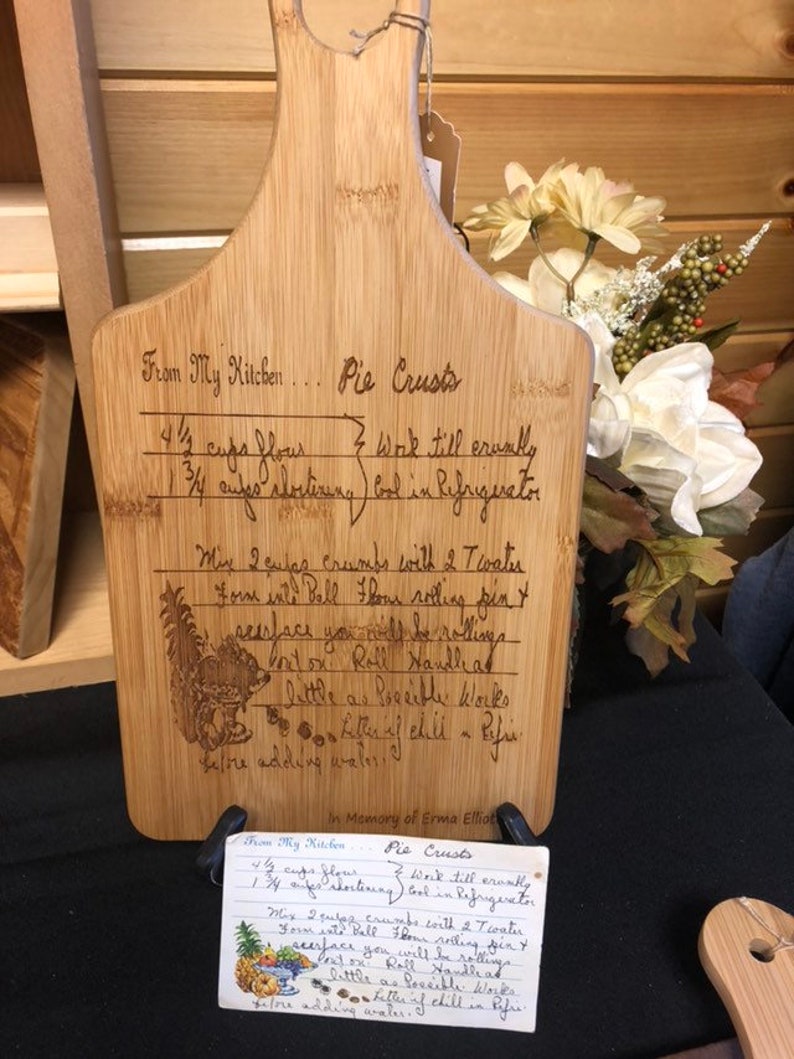 From My Kitchen . . . Pie Crusts
4 1/2 cups flour } Work till crumbly
1 3/4 cups shortening } Cool in Refrigerator
Mix 2 cups crumbs with 2 T water
Form into Ball Flour rolling pin +
scerface you will be rollings
out on. Roll Handle as
little as Possible. Works
better if chill in Refri.
before adding water.
In Memory of Erma Elliot
From My Kitchen . . . . Pie Crusts
4 1/2 cups flour } Work till crumbly
1 3/4 cups shortening } Cool in Refrigerator
Mix 2 cups crumbs with 2 T water
Form into Ball Flour rolling pin +
scerface you will be rollings
out on. Roll Handle as
little as Possible. Works
better if chill in Refri.
before adding water.